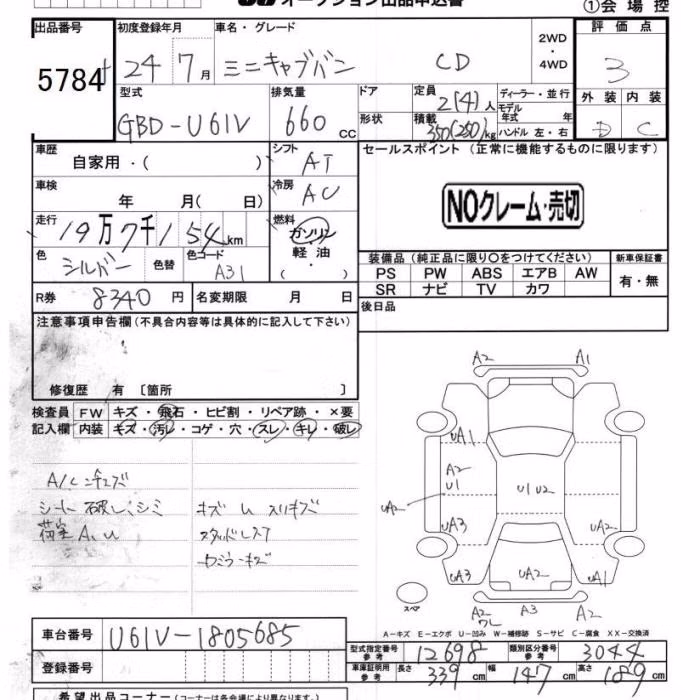 オークション出品申込書
①会場控
出品番号 初度登録年月 車名・グレード 2WD・4WD 評価点
5784 24年7月 ミニキャブバン CD 3
型式 排気量 ドア 定員 2(4)人 ディーラー・並行 外装 内装
GBD-U61V 660cc 形状 積載 350(250)kg モデル年式 年 ハンドル 左・右 D C
車歴 自家用・( ) シフト AT セールスポイント(正常に機能するものに限ります)
車検 年 月( 日) 冷房 AC
NOクレーム・売切
走行 19万7千154km 燃料 ガソリン 軽油・( )
色 シルバー 色替 色コード A31
装備品(純正品に限り○をつけてください) 新車保証書
PS PW ABS エアB AW 有・無
SR ナビ TV カワ
R券 8340円 名変期限 月 日 後日品
注意事項申告欄(不具合内容等は具体的に記入して下さい)
修復歴 有 〔箇所 〕
検査員 FW キズ・飛石・ヒビ割・リペア跡・×要
記入欄 内装 キズ・汚レ・コゲ・穴・スレ・キレ・破レ
A2 A1
UA1
A2
U1
U1 U2
UA2
UA3 UA2
UA3 UA2 UA1
スペア
A2 A3 A2
シート破レ、シミ キズ U スリキズ
荷室A、U スタッドレス
A-キズ E-エクボ U-凹み W-補修跡 S-サビ C-腐食 XX-交換済
車台番号 U61V-1805685
型式指定番号 参考 12698 類別区分番号 参考 3044
登録番号
車庫証明用 参考 長さ 339cm 幅 147cm 高さ 189cm
希望出品コーナー(コーナーは各会場により異なります。)